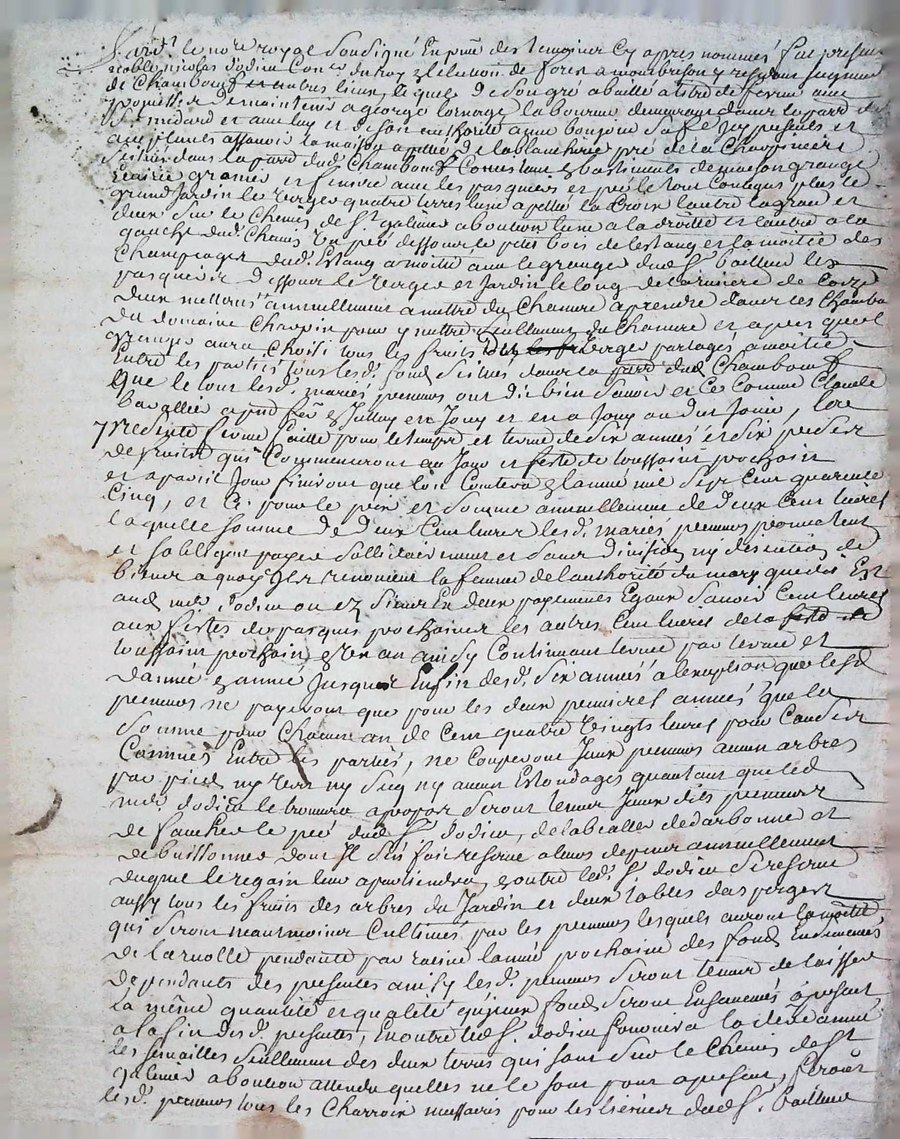 le no.re royal soussigné en p.nce des temoins cy apres nommés fut present
noble nicolas dodieu con.er du roy en l'election de forest a montbrison y resident seigneur
de Chambœuf et autres lieux, lequel de son gré a baillé a titre de ferme avec
promesse de maintenir a george demeurant dans la par.
St medard et avec luy et de son authorité anne sa fe. icy presents et
acceptants assavoir la maison appellée de la blancherie pré de la
scitués dans la par. dud. Chambœuf Consistant en bastiments de maison grange
écurie grenier et feniere avec les pasquiers et pré le tout contigus plus le
grand Jardin le verger quatre terres lune appellée la Croix lautre la grand et
deux sur le Chemin de St galmier a boutheon lune a la droitte et lautre a la
gauche dud. Chemin un peu dessous le petit bois de lestang et la moitié des
champeages dud. Estang a moitié avec le granger dud. S. bailleur les
pasquiers dessous le verger et Jardin le long de la riviere de
deux annuellement a mettre du Chanvre a prendre dans les
du domaine Chappin pour y mettre seullement du Chanvre et apres que le
granger aura Choisi tous les fruits du verger partagés a moitié
Entre les parties tous lesd. fonds scitués dans la par. dud. Chambœuf
que le tout lesd. mariés preneurs ont dit bien sçavoir et Ce Comme Claude
Cavallier a p.nt fer. en jouy et en a jouy ou dut jouir, lad.
presente ferme faitte pour le temps et terme de six années et six perceus
de fruits qui Commenceront au Jour et feste de toussaint prochain
et a pareil Jour finiront que lon Comtera en lannée mil sept Cent quarente
Cinq, et Ce pour le prix et somme annuellement de deux Cent livres
laquelle somme de deux Cent livres lesd. mariés preneurs promettent
et sobligent payer sollidairement et sans division ny discution de
biens a quoy ils renoncent la femme de lauthorité du mary que dessus
aud. sieur dodieu ou en deux payements Egaux sçavoir Cent livres
aux festes de pasques prochaines les autres Cent livres de la feste de
toussaint prochain en un an ainsy Continuant terme par terme et
dannée en année Jusques Enfin desd. Six années a lexeption que lesd.
preneurs ne payeront que pour les deux premieres années que la
somme pour Chacun an de Cent quatre vingts livres pour
Connues Entre les parties, ne Couperont Iceux preneurs aucun arbres
par pied ny vert ny secq ny aucun Ebrondages quautant que led.
sieur dodieu le trouvera apropos seront tenus Iceux dits preneurs
de faucher le pré dud. S. dodieu, de labeallée et
de buissonnée dont Il sest fait reserve a leurs depens annuellement
duquel le regain leur apartiendra, en outre led. S. dodieu se reserve
aussy tous les fruits des arbres du Jardin et deux tables dasperges
qui seront neantmoins Cultivés par les preneurs lesquels auront la moitié
de la recolte pendante par racine lannée prochaine des fonds Ensemencés
dependants des presentes ainsy lesd. preneurs seront tenus de laisser
la même quantité et qualité quiceux fonds seront Ensemencés apresent
a la fin desd. presentes, En outre led. S. dodieu fournira la année
les semailles seullement des deux terres qui sont sur le Chemin de St
galmier a boutheon attendu quelles ne le sont pour apresent, feront
lesd. preneurs tous les Charrois necessaires pour les dud. S. bailleur